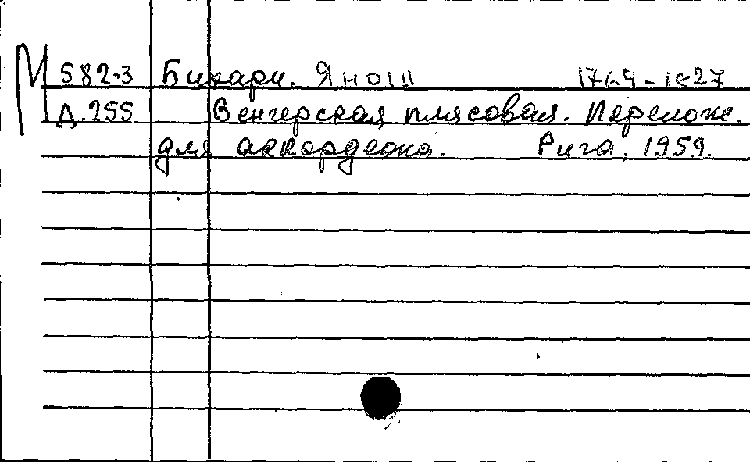 М 582-3 Бихари. Янош 1764-1827
Д.255 Венгерская плясовая. Перелож.
для аккордеона. Рига, 1959.